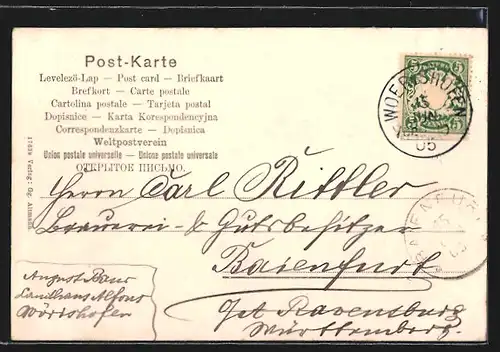 Post-Karte
Levelező-Lap — Post card — Briefkaart
Brefkort — Carte postale
Cartolina postale — Tarjeta postal
Dopisnice — Karta Korespondencyjna
Correspondenzkarte — Dopisnica
Weltpostverein
Union postale universelle — Unione postale universale
ОТКРЫТОЕ ПИСЬМО.
Verlag:
5 5
WOERISHOFEN
15
JUN
05
Herrn Carl Rittler
Brauerei- & Gutsbesitzer
Baienfurt
Ravensburg
Württemberg.
August Baur
Landhaus Alfons
Wörishofen